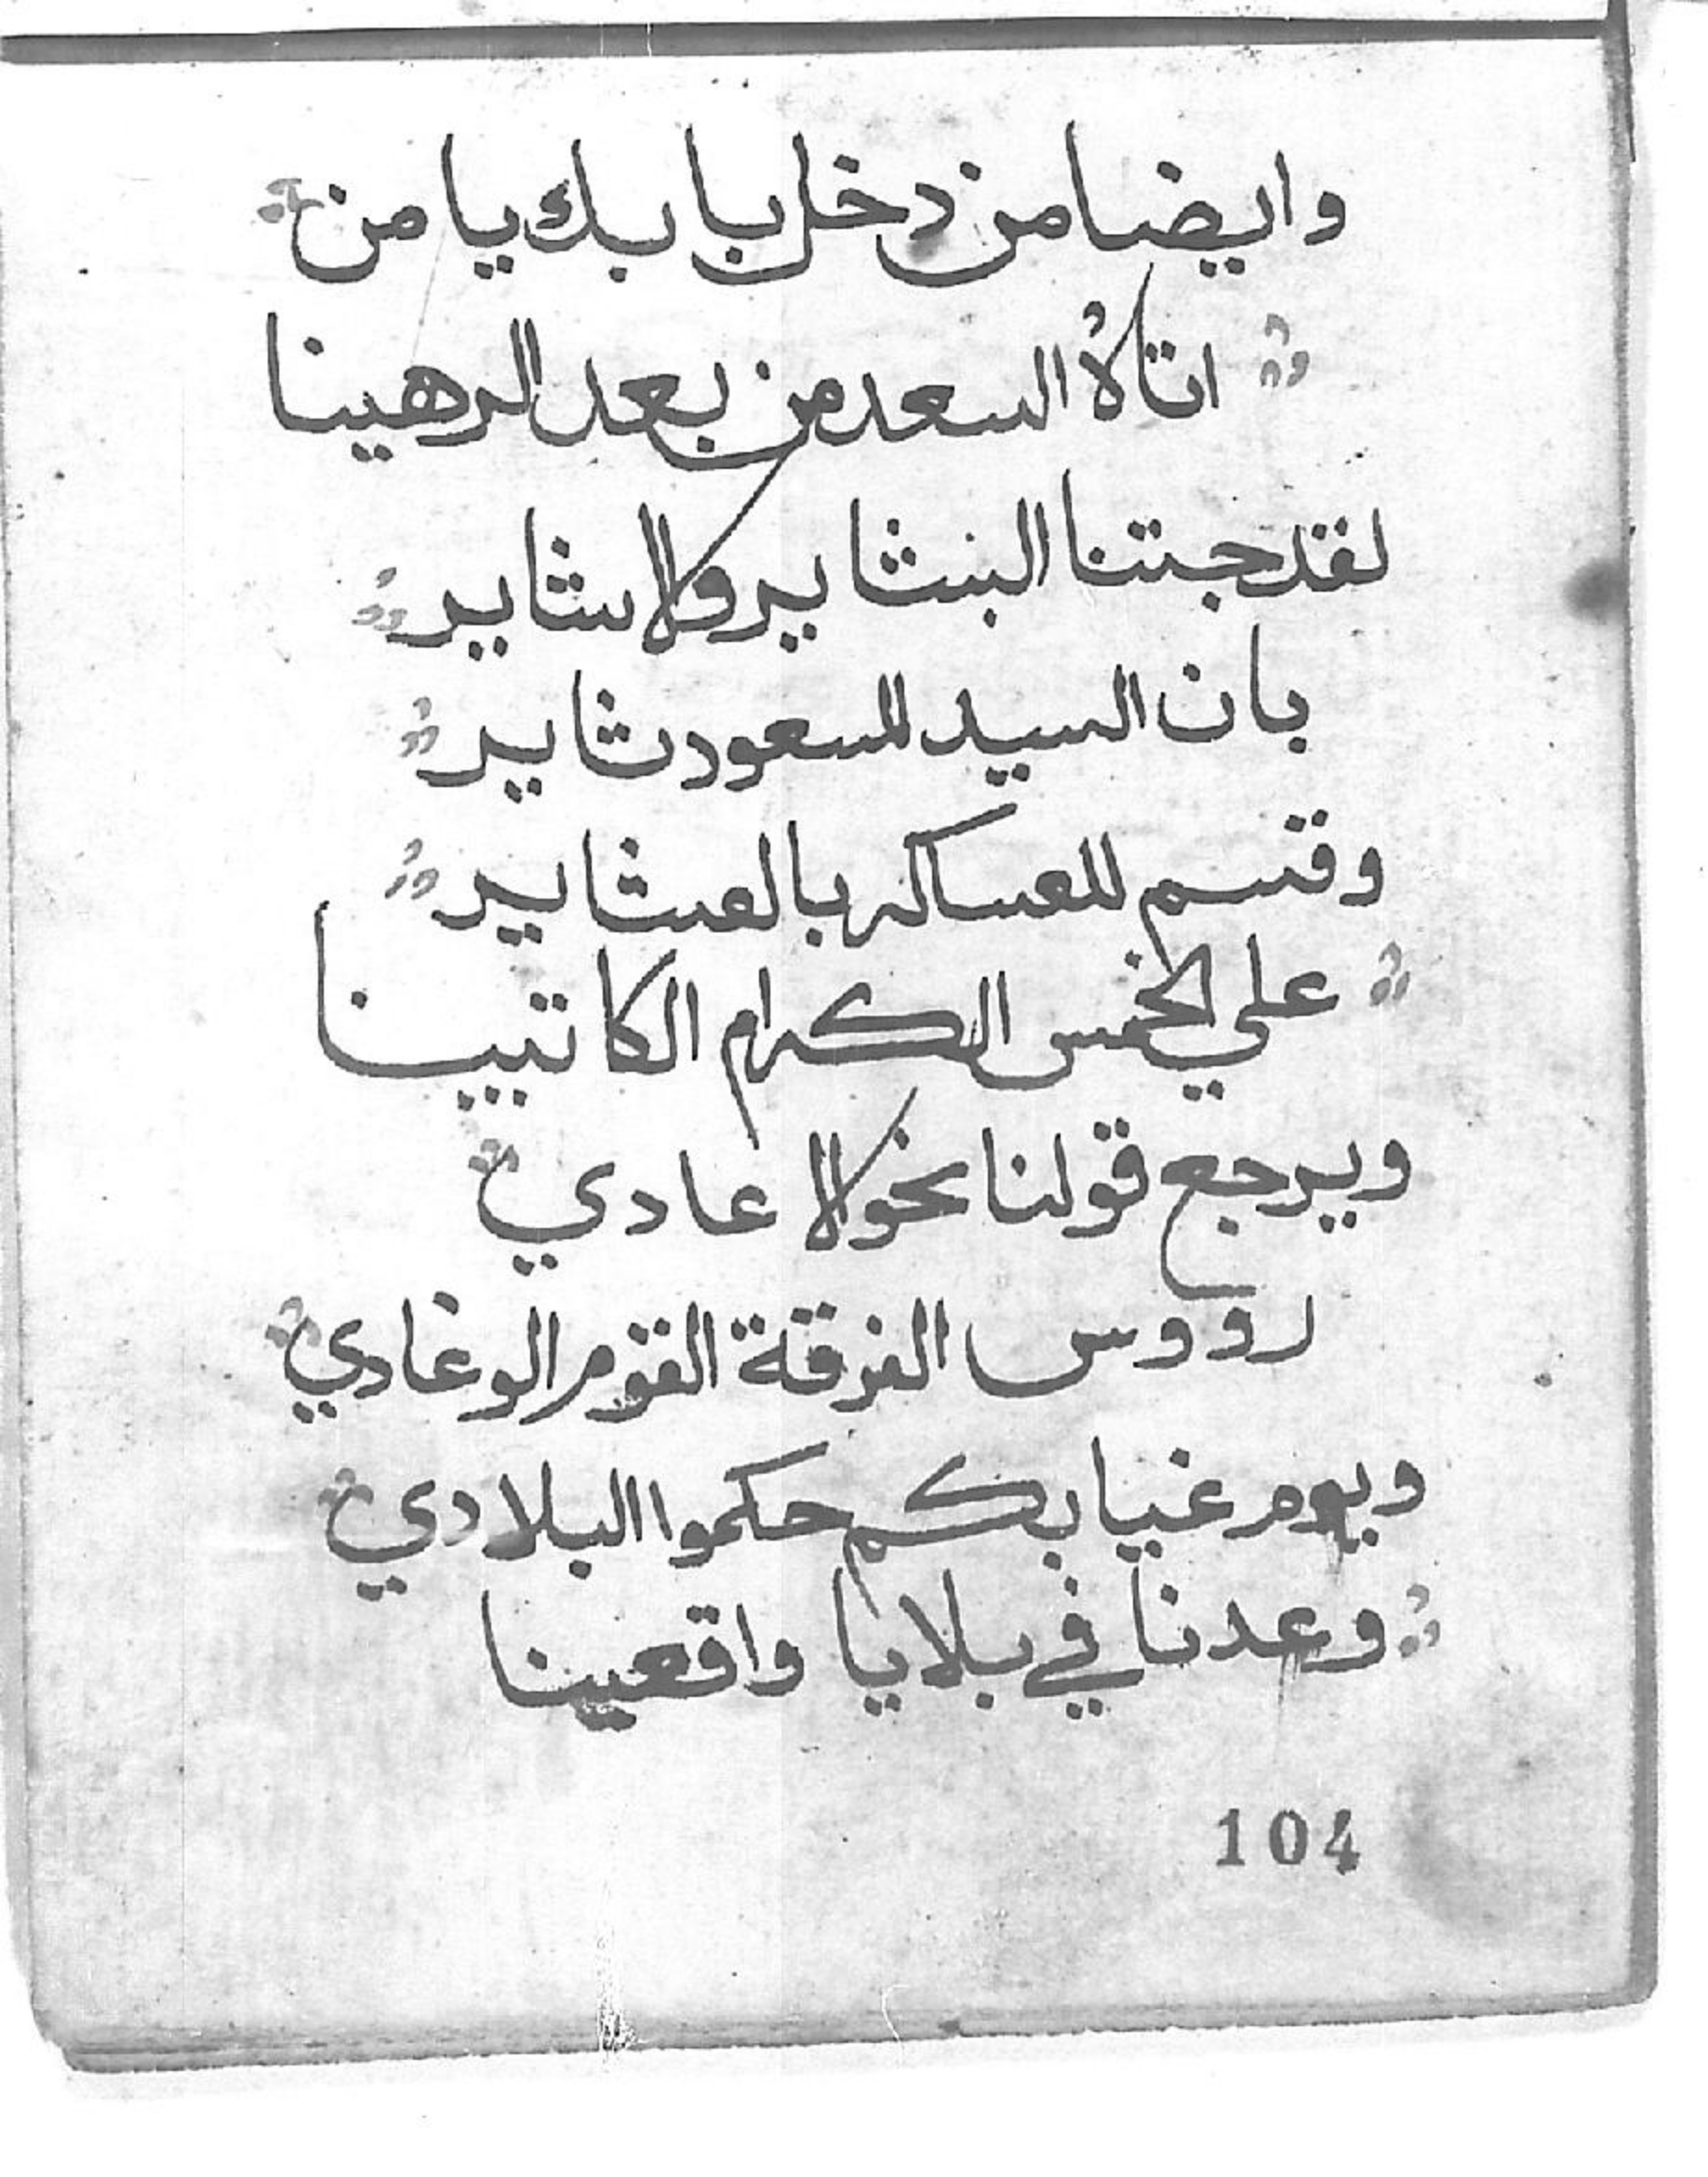 وايضا من دخل بابك يا من
اتاه السعد من بعد الرهينا
لقد جتنا البشاير والاشاير
بان السيد للسعود ثاير
وقسم للعساكر بالعشاير
علي الخمس الكرام الكاتبينا
ويرجع قولنا نحو الاعادي
رووس الفرقة القوم الوغادي
ويوم غيابكم حكموا البلادي
وعدنا في بلايا واقعينا
104